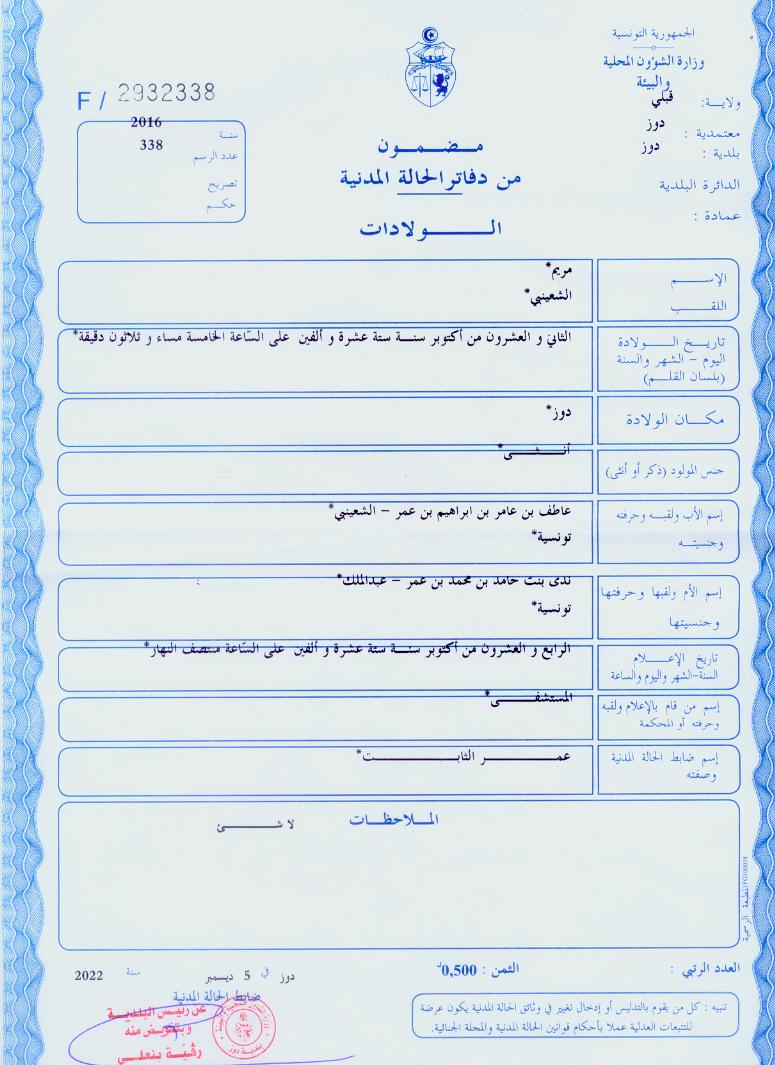 الجمهورية التونسية
وزارة الشؤون المحلية
والبيئة
ولايـــة: قبلي
معتمدية : دوز
بلدية : دوز
الدائرة البلدية
عمادة :
F / 2932338
سنة 2016
عدد الرسم 338
تصريح
حكـــم
مـــضـــمـــون
من دفاتر الحالة المدنية
الـــــولادات
الإســـم مريم*
اللقـــب الشعينبي*
تاريـــخ الـــــولادة الثاني و العشرون من أكتوبر سنـــة ستة عشرة و ألفين على السّاعة الخامسة مساء و ثلاثون دقيقة*
اليوم – الشهر والسنة
(بلسان القلـــم)
مكـــان الولادة دوز*
جنس المولود (ذكر أو أنثى) أنـــثـــى*
إسم الأب ولقبـــه وحرفته عاطف بن عامر بن ابراهيم بن عمر – الشعينبي*
وجنسيتـــه تونسية*
إسم الأم ولقبها وحرفتها ندى بنت حامد بن محمد بن عمر – عبدالملك*
وجنسيتها تونسية*
تاريخ الإعـــلام الرابع و العشرون من أكتوبر سنـــة ستة عشرة و ألفين على السّاعة منتصف النهار*
السنة-الشهر واليوم والساعة
إسم من قام بالإعلام ولقبه المستشفـــى*
وحرفته أو المحكمة
إسم ضابط الحالة المدنية عمـــــر الثابـــــت*
وصفته
الملاحظـــات
لا شـــئ
المطبعة الرسمية
العدد الرتبي :
الثمن : 0,500د
دوز في 5 ديسمبر سنة 2022
ضابط الحالة المدنية
تنبيه : كل من يقوم بالتدليس أو إدخال تغيير في وثائق الحالة المدنية يكون عرضة
للتتبعات العدلية عملا بأحكام قوانين الحالة المدنية والمجلة الجنائية.
عن رئيس البلدية
وبتفويض منه
رقيّة بنعلي
بلدية دوز